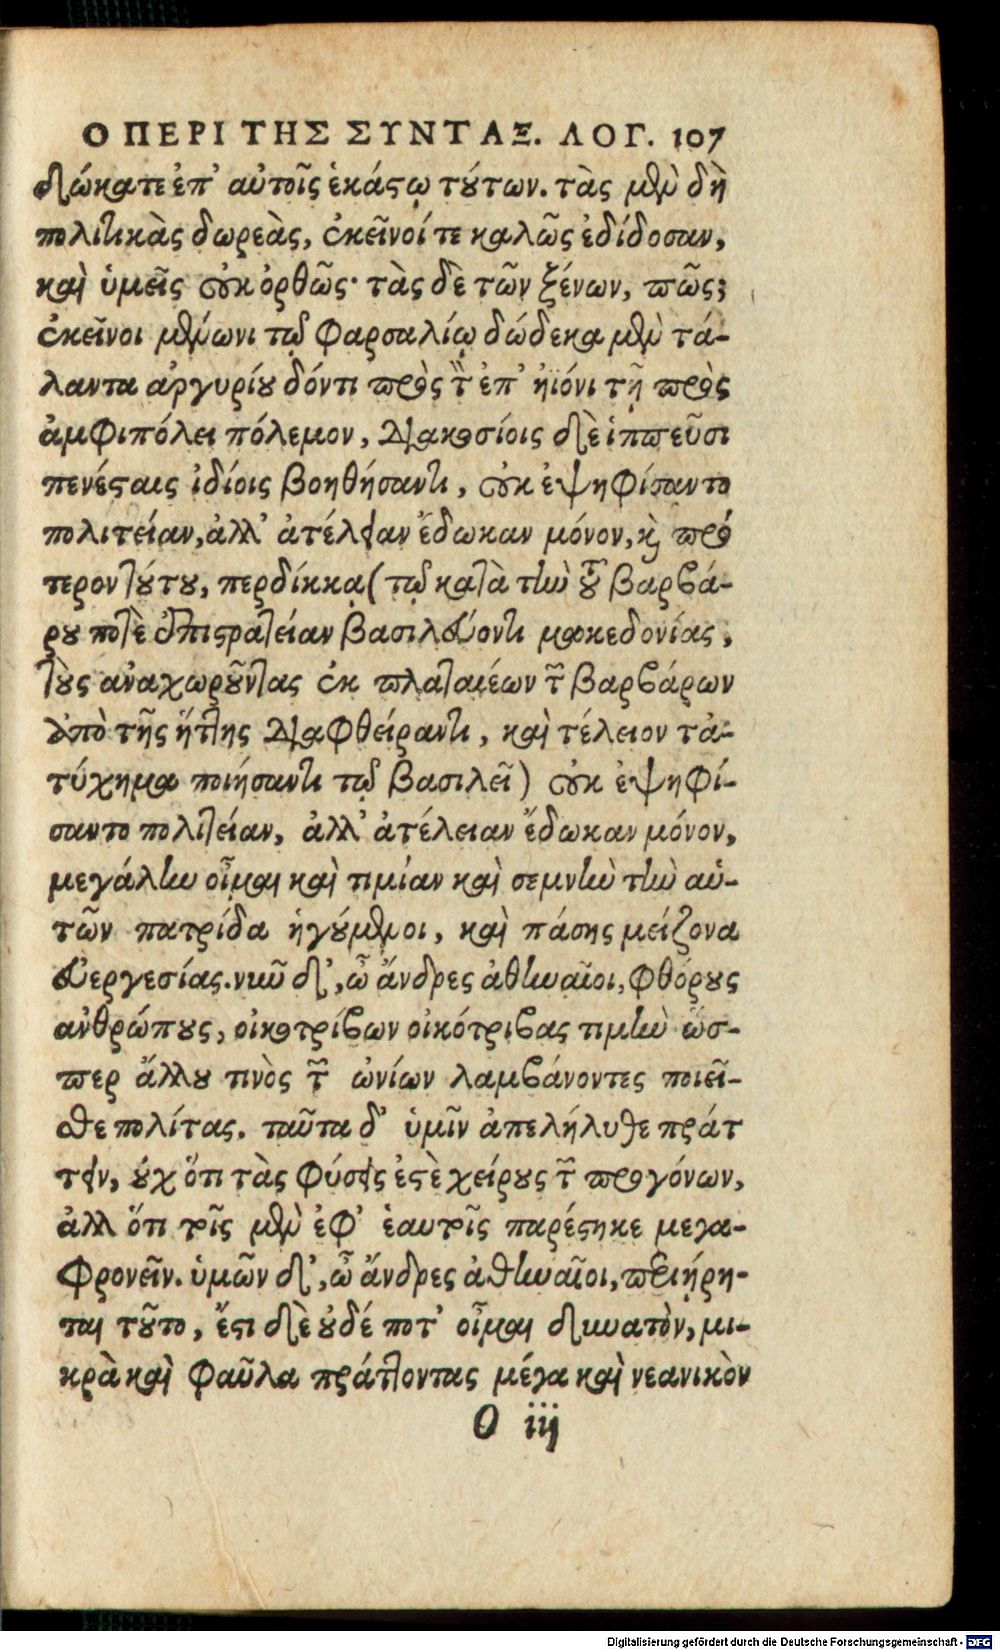 Ο ΠΕΡΙ ΤΗΣ ΣΥΝΤΑΞ. ΛΟΓ. 107
δώκατε ἐπ' αὐτοῖς ἑκάστῳ τούτων. τὰς μὲν δὴ
πολιτικὰς δωρεὰς, ἐκεῖνοί τε καλῶς ἐδίδοσαν,
καὶ ὑμεῖς οὐκ ὀρθῶς· τὰς δὲ τῶν ξένων, πῶς;
ἐκεῖνοι μένωνι τῷ Φαρσαλίῳ δώδεκα μὲν τά-
λαντα ἀργυρίου δόντι πρὸς τὸν ἐπ' ἠϊόνι τῇ πρὸς
ἀμφιπόλει πόλεμον, διακοσίοις δὲ ἱππεῦσι
πενέσταις ἰδίοις βοηθήσαντι, οὐκ ἐψηφίσαντο
πολιτείαν, ἀλλ' ἀτέλειαν ἔδωκαν μόνον, καὶ πρό
τερον τούτου, περδίκκᾳ (τῷ κατὰ τὴν τοῦ βαρβά-
ρου ποτὲ ἐπιστρατείαν βασιλεύοντι μακεδονίας,
τοὺς ἀναχωροῦντας ἐκ πλαταιέων τῶν βαρβάρων
ἀπὸ τῆς ἥττης διαφθείραντι, καὶ τέλειον τἀ-
τύχημα ποιήσαντι τῷ βασιλεῖ) οὐκ ἐψηφί-
σαντο πολιτείαν, ἀλλ' ἀτέλειαν ἔδωκαν μόνον,
μεγάλην οἶμαι καὶ τιμίαν καὶ σεμνὴν τὴν αὑ-
τῶν πατρίδα ἡγούμενοι, καὶ πάσης μείζονα
εὐεργεσίας. νῦν δ', ὦ ἄνδρες ἀθηναῖοι, φθόρους
ἀνθρώπους, οἰκοτρίβων οἰκότριβας τιμὴν ὥσ-
περ ἄλλου τινὸς τῶν ὠνίων λαμβάνοντες ποιεῖ-
σθε πολίτας. ταῦτα δ' ὑμῖν ἀπελήλυθε πράτ
τειν, οὐχ ὅτι τὰς φύσεις ἐστὲ χείρους τῶν προγόνων,
ἀλλ ὅτι τοῖς μὲν ἐφ' ἑαυτοῖς παρέστηκε μεγα-
φρονεῖν. ὑμῶν δ', ὦ ἄνδρες ἀθηναῖοι, περιήρη-
ται τοῦτο, ἔστι δὲ οὐδέ ποτ' οἶμαι δυνατὸν, μι-
κρὰ καὶ φαῦλα πράττοντας μέγα καὶ νεανικὸν
O iij
Digitalisierung gefördert durch die Deutsche Forschungsgemeinschaft - DFG